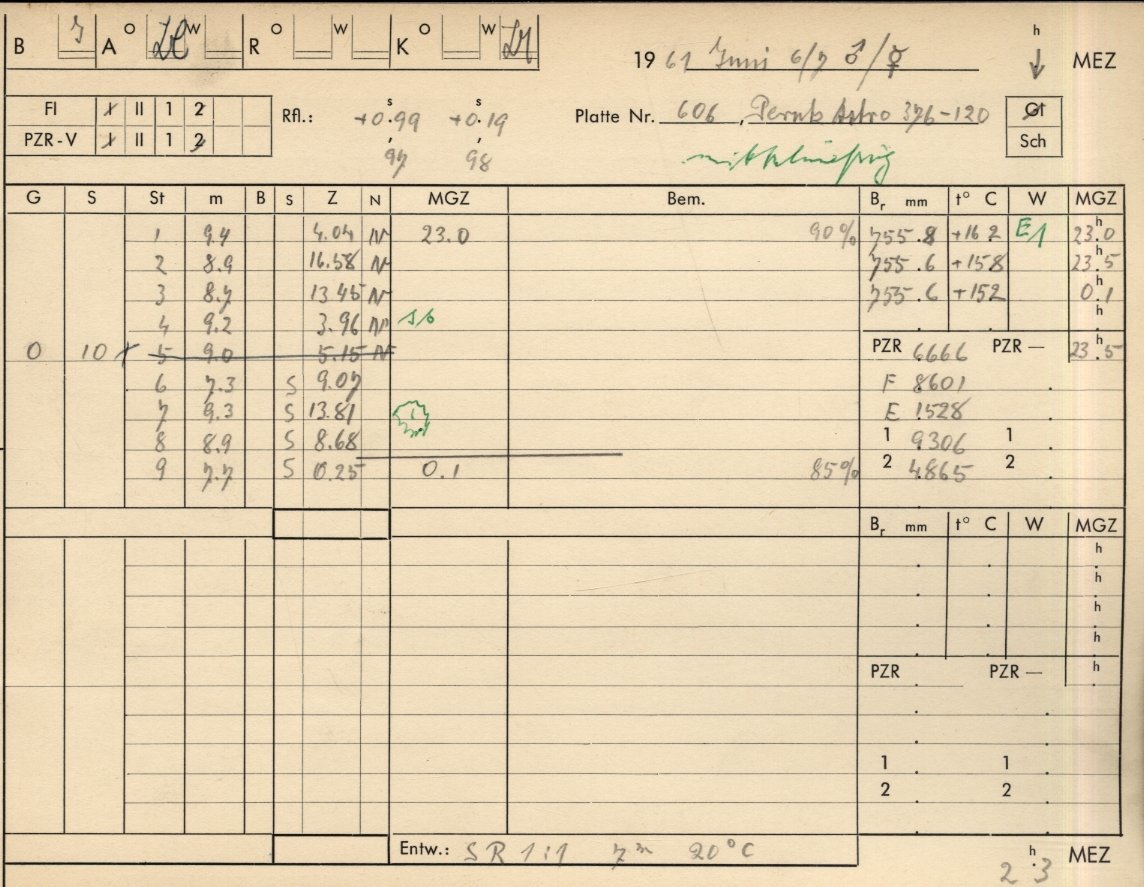 B A O W R O W K O W
19 61 Juni 6/7 ♂/☿ h MEZ
FI I II 1 2
PZR-V I II 1 2
Rfl.: +0.99 +0.19
97 98
Platte Nr. 606, Perutz Astro 376-120
Gt
Sch
G S St m B S Z N MGZ Bem. Br mm t° C W MGZ
1 9.4 4.04 N 23.0 90% 755.8 +16 2 E1 23.0
2 8.9 16.58 N 755.6 +158 23.5
3 8.7 13 45 N 755.6 +152 0.1
4 9.2 3.96 N h
0 10 5 9.0 5.15 N PZR 6666 PZR — 23.5
6 7.3 S 9.07 F 8601
7 9.3 S 13.81 E 1528
8 8.9 S 8.68 1 9306 1
9 7.7 S 0.25 0.1 85% 2 4865 2
Br mm t° C W MGZ
h
h
h
h
PZR PZR — h
1 1
2 2
Entw.: SR 1:1 7m 20°C
2 h 3 MEZ